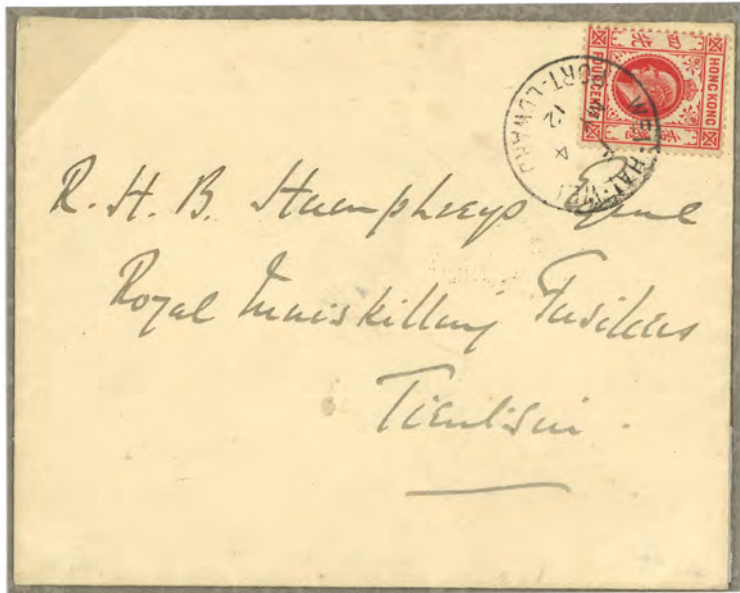 HONG KONG
FOUR CENTS
四 先
WEI-HAI-WEI
PORT-EDWARD
12
R. H. B. Humphreys Esqre
Royal Inniskilling Fusiliers
Tientsin.